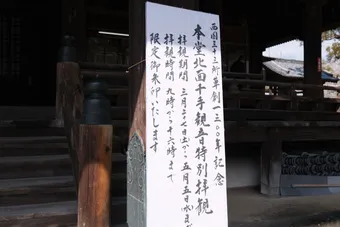 西国三十三所草創一三〇〇年記念
本堂北面千手観音特別拝観
拝観期間 三月二十七日(土)から五月五日(水)まで
拝観時間 九時から十六時まで
限定御朱印いたします